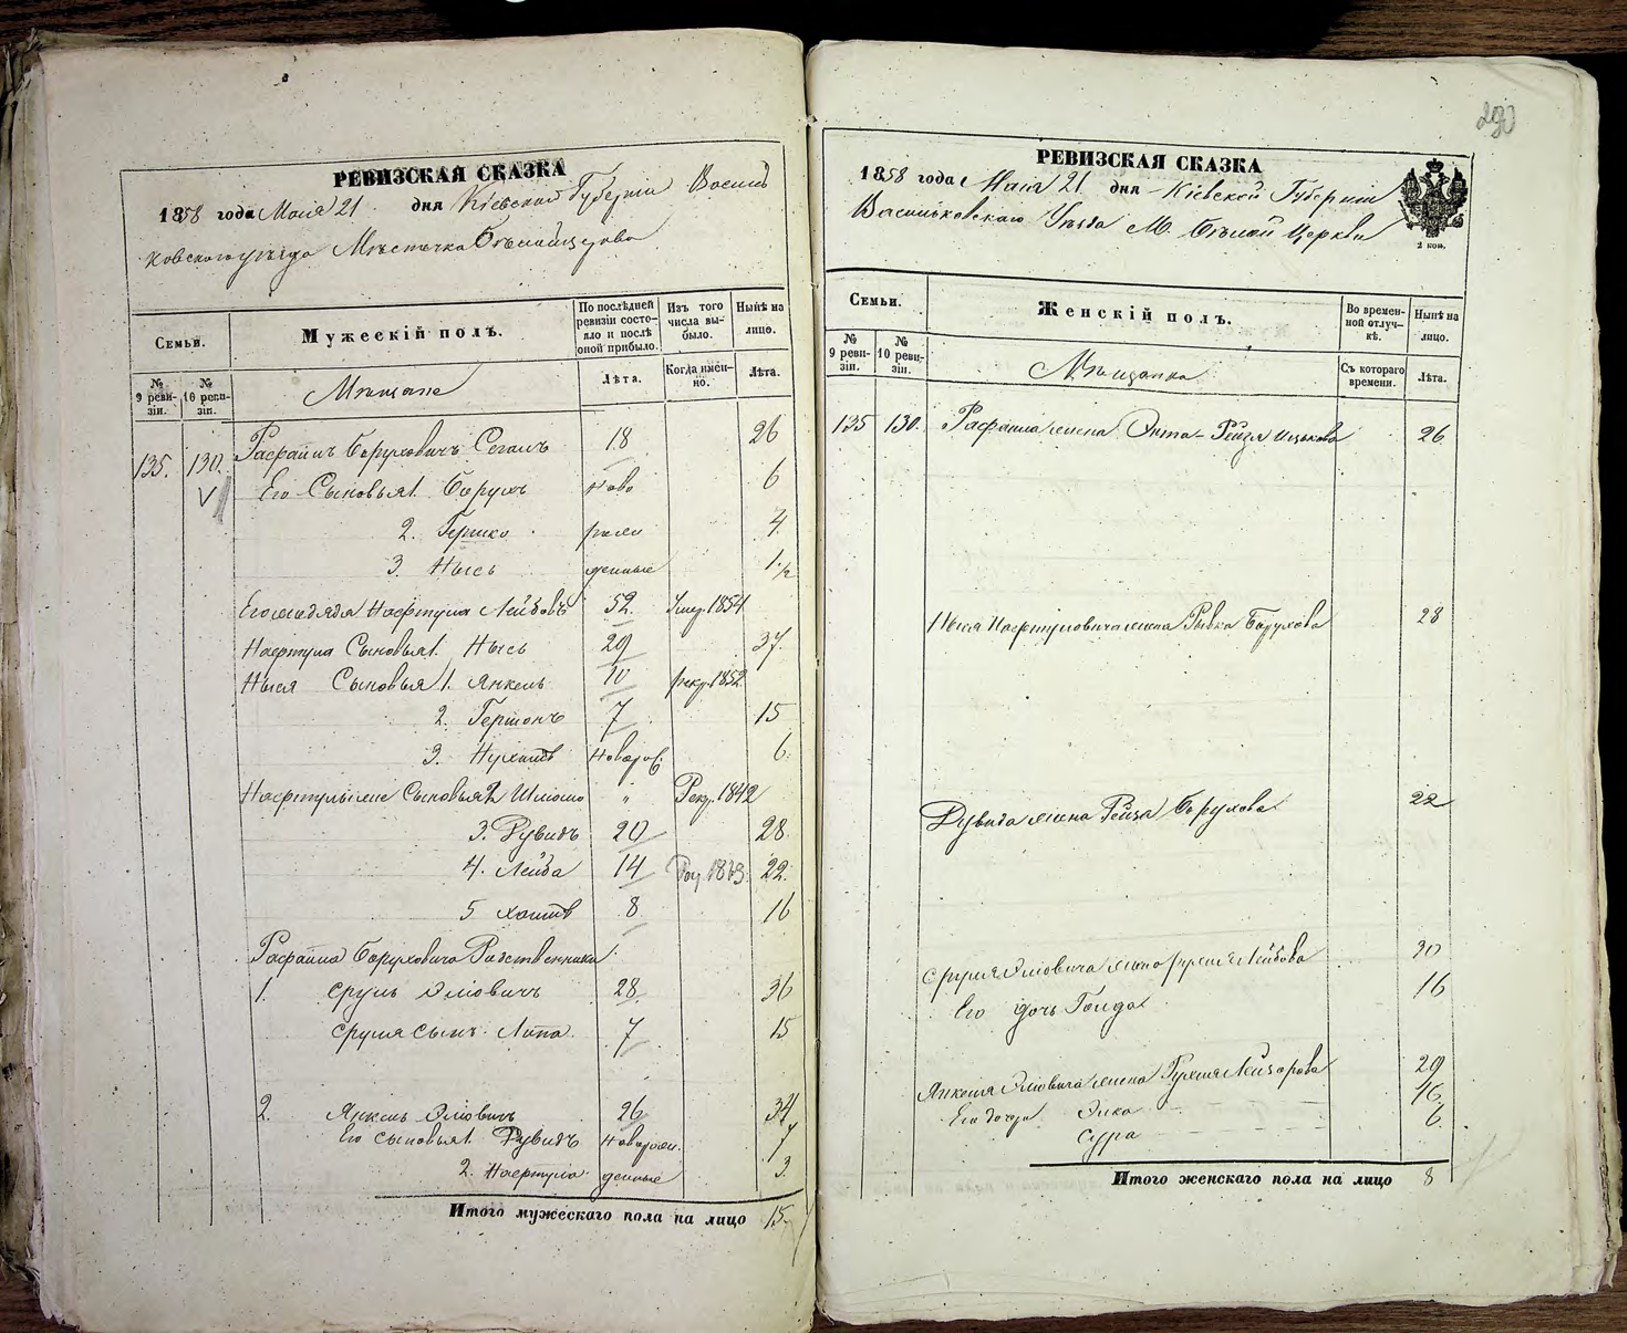 290
РЕВИЗСКАЯ СКАЗКА
1858 года Мая 21 дня Кіевской Губерніи Василь
ковского уѣзда Мѣстечка
Семьи.
Мужескій полъ.
По послѣдней ревизіи состояло и послѣ оной прибыло.
Изъ того числа выбыло.
Нынѣ на лицо.
№ 9 ревизіи.
№ 10 ревизіи.
Мѣщане
Лѣта.
Когда именно.
Лѣта.
135. 130. Рафаилъ Боруховичъ Сегалъ 18 26
V Его Сыновья 1. Борухъ ново 6
2. Гершко рож 4
3. Нысь денные 1 1/2
Его дядя Нафтула Лейбовъ 52. Умер. 1854
Нафтула Сыновья 1. Нысь 29 37.
Ныся Сыновья 1. Янкель 10 рекр. 1852
2. Гершонъ 7 15
3. Новорож. 6.
Сыновья 2 Шлiома " Рекр. 1842
3. Дувидъ 20 28
4. Лейба 14 22.
5 8 16
Рафаила Боруховича Родственники
1. Сруль Элiовичъ 28. 36
Сруля сынъ Липа 7 15
2. Янкель Элiовичъ 26 34
Его сыновья 1. Дувидъ новорож. 7
2. Нафтула денные 3
Итого мужескаго пола на лицо 15.
РЕВИЗСКАЯ СКАЗКА
1858 года Маія 21 дня Кіевской Губерніи
Васильковскаго Уѣзда М. Бѣлой Церкви
2 коп.
Семьи.
Женскій полъ.
Во временной отлучкѣ.
Нынѣ на лицо.
№ 9 ревизіи.
№ 10 ревизіи.
Мѣщанка
Съ котораго времени.
Лѣта.
135 130. Рафаила жена Рейзя Ицькова 26
Ныся Нафтуловича жена Рывка Борухова 28
Дувида жена Рейза Борухова 22
Сруля Элiовича жена Лейбова 30
Его дочь Голда 16
Янкеля Элiовича жена Рухля Лейзорова 29
Его дочери Элка 16.
Сура 6.
Итого женскаго пола на лицо 8